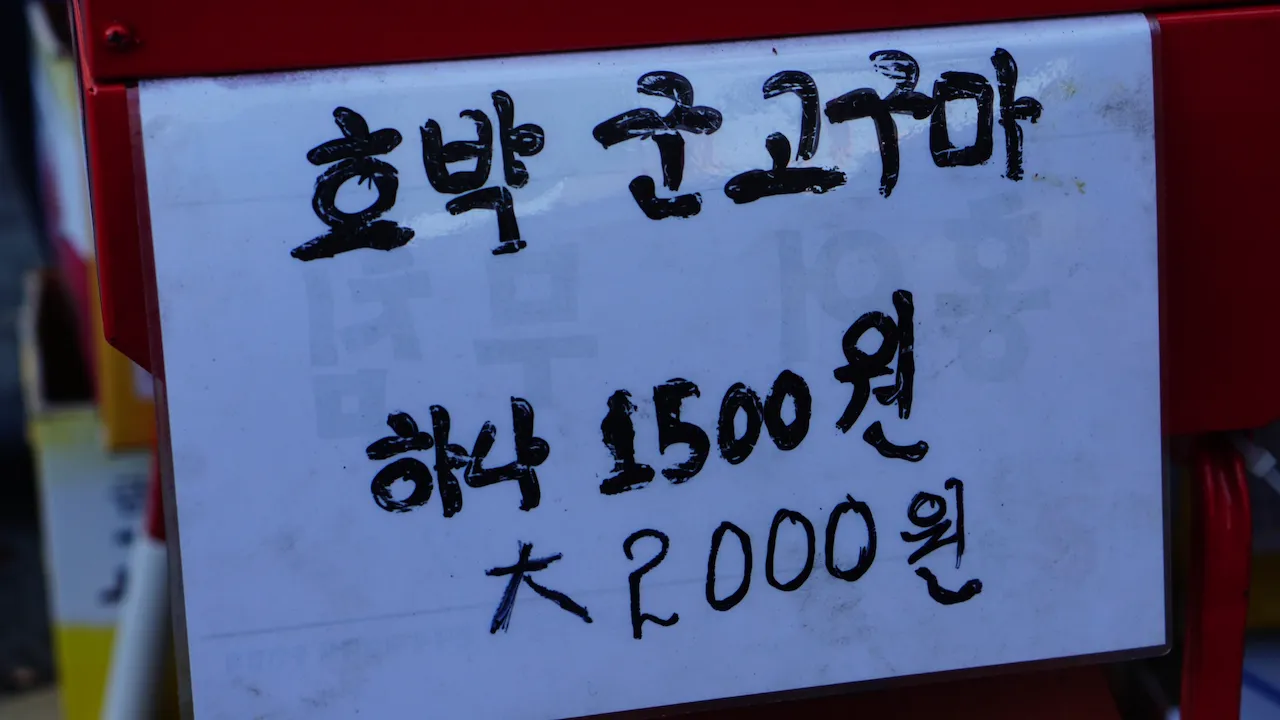 호박 군고구마
하나 1500원
大 2000원